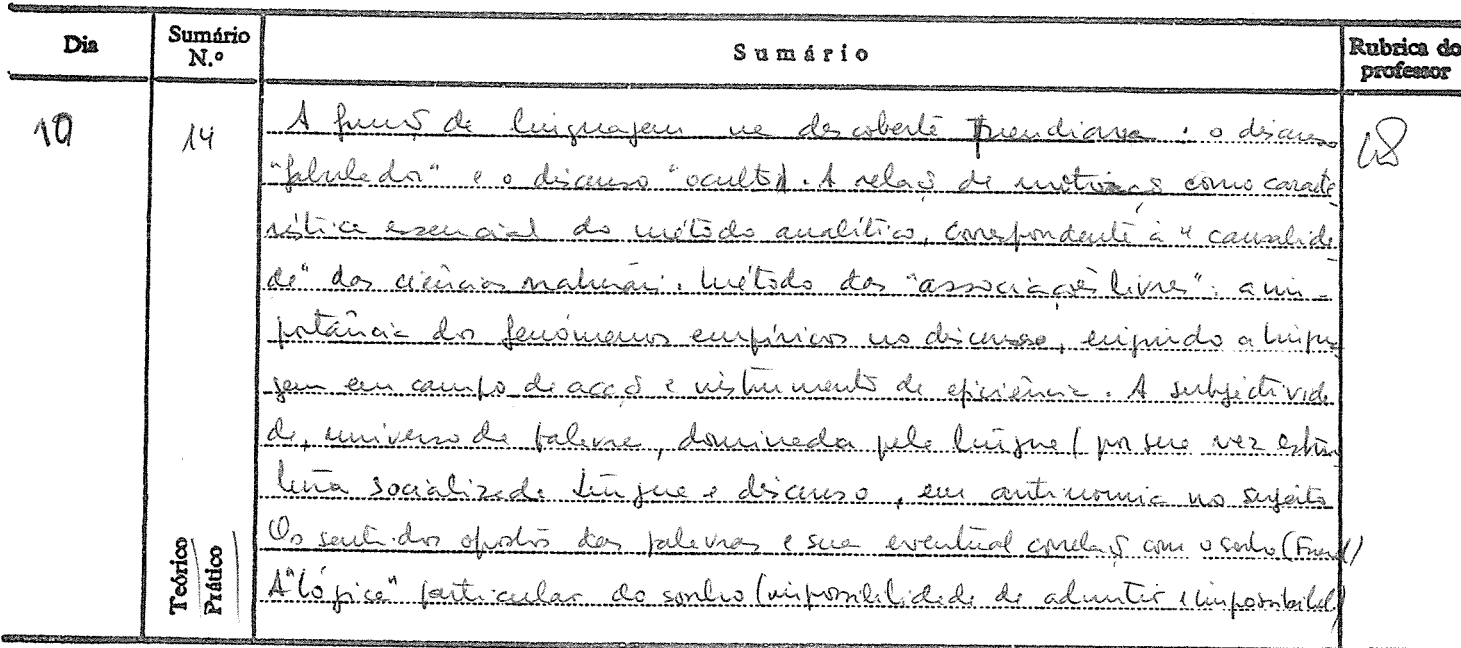 Dia Sumário N.º Sumário Rubrica do professor
10 14 A função de linguagem na descoberta freudiana: o discurso
"fabulador" e o discurso "oculto". A relação de motivação como caracte
rística essencial do método analítico, correspondente à "causalida
de" das ciências naturais. Método das "associações livres": a im-
portância dos fenómenos empíricos no discurso, erigindo a lingua
gem em campo de acção e instrumento de eficiência. A subjectivida
de, universo da palavra, dominada pela língua (por sua vez estru
tura socializada. Língua e discurso, em antinomia no sujeito
Os sentidos opostos das palavras e sua eventual correlação com o sonho (Freud)
A "lógica" particular do sonho (impossibilidade de admitir
Teórico
Prático